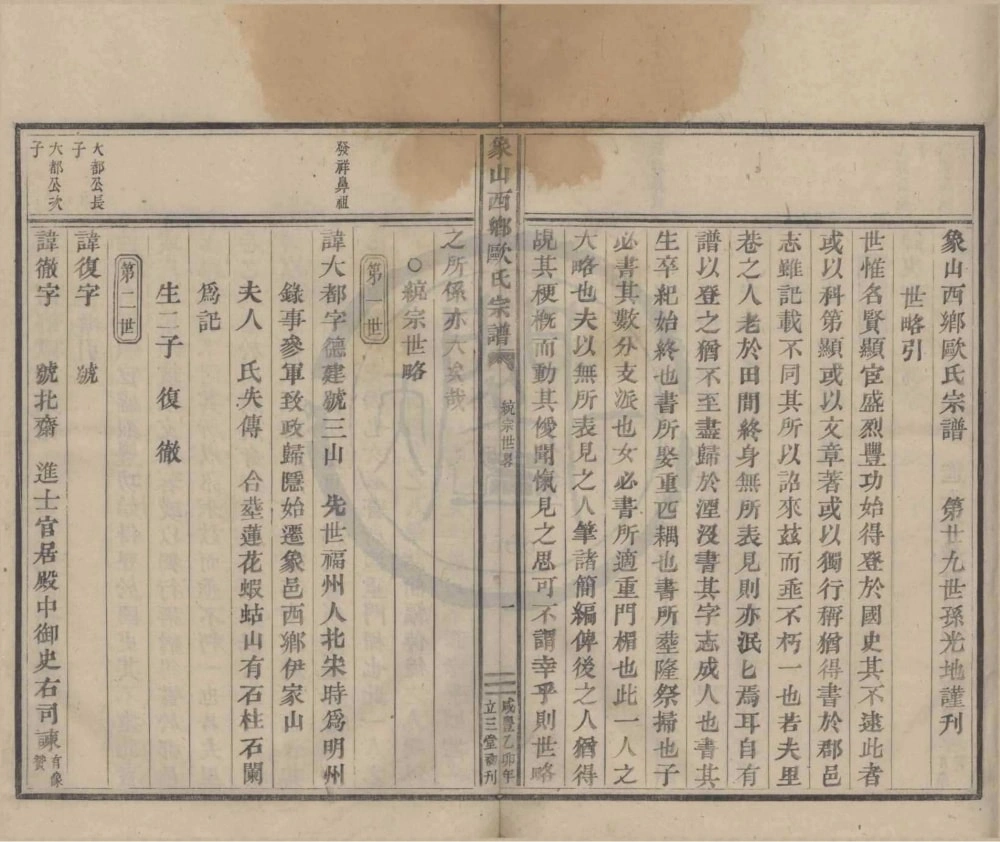 象山西鄉歐氏宗譜 第廿九世孫光地謹刊
世略引
世惟名賢顯宦盛烈豐功始得登於國史其不逮此者
或以科第顯或以文章著或以獨行稱猶得書於郡邑
志雖記載不同其所以詔來茲而垂不朽一也若夫里
巷之人老於田間終身無所表見則亦泯匕焉耳自有
譜以登之猶不至盡歸於湮沒書其字志成人也書其
生卒紀始終也書所娶重匹耦也書所塟隆祭掃也子
必書其數分支派也女必書所適重門楣也此一人之
大略也夫以無所表見之人筆諸簡編俾後之人猶得
覩其梗槪而動其僾聞愾見之思可不謂幸乎則世略
象山西鄉歐氏宗譜
統宗世畧
一
咸豐乙卯年
立三堂刊
之所係亦大矣哉
○統宗世略
第一世
發祥鼻祖
諱大都字德建號三山 先世福州人北宋時爲明州
錄事參軍致政歸隱始遷象邑西鄉伊家山
夫人 氏失傳 合塟蓮花蝦蛄山有石柱石闌
爲記
生二子 復 徹
第二世
大都公長
子
諱復字 號
大都公次
子
諱徹字 號北齋 進士官居殿中御史右司諫 有像贊